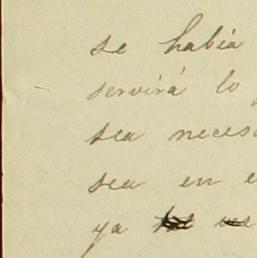 se había
servirá lo
sea neces
sea en e
ya